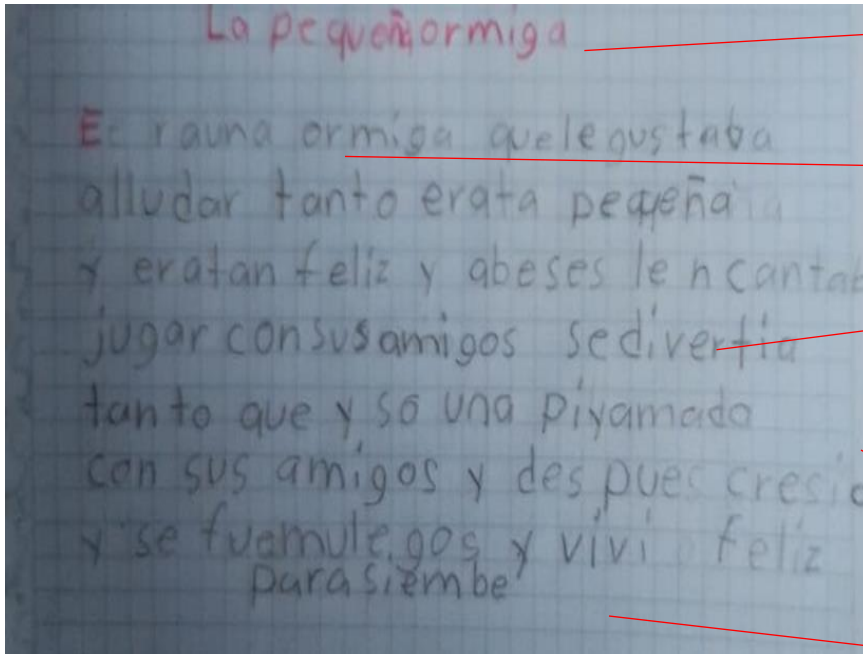 La pequeñaormiga
E rauna ormiga quele gustaba
alludar tanto erata pequeña
y eratan feliz y abeses le ncantab
jugar consusamigos sedivertia
tanto que y so una piyamada
con sus amigos y des pues cresio
y se fuemule.gos y vivi feliz
parasiembe